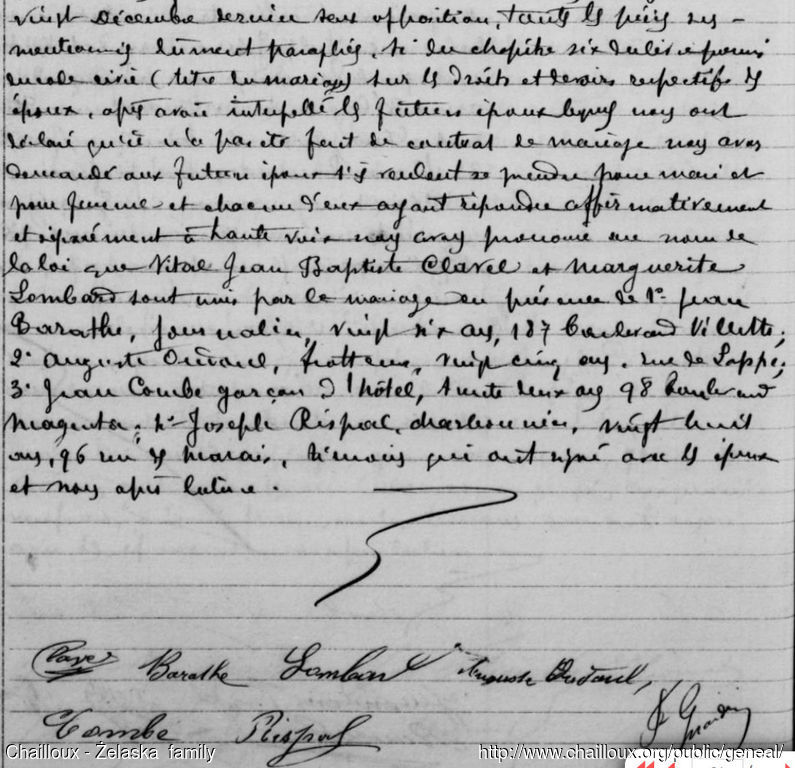 vingt Décembre dernier sans opposition, tants les pièces sus-
mentionnées dûment paraphés, et du chapitre six du livre premier
du code civil (titre du mariage) sur les droits et devoirs respectifs des
époux, après avoir interpellé les futurs époux lesquels nous ont
déclaré qu'il n'a pas été fait de contrat de mariage nous avons
demandé aux futurs époux s'ils veulent se prendre pour mari et
pour femme et chacun d'eux ayant répondu affirmativement
et séparément à haute voix nous avons prononcé au nom de
la loi que Vital Jean Baptiste Clavel et Marguerite
Lombard sont unis par le mariage en présence de 1º Jean
Barathe, journalier, vingt six ans, 187 boulevard Villette;
2º Auguste frotteur, vingt cinq ans, rue de Lappe;
3º Jean Combe garçon d'hôtel, trente deux ans 98 boulevard
Magenta; 4º Joseph Rispal, charbonnier, vingt huit
ans, 96 rue des Marais, témoins qui ont signé avec les époux
et nous après lecture.
Barathe Lombard Auguste
Combe Rispal
Chailloux - Żelaska family http://www.chailloux.org/public/geneal/